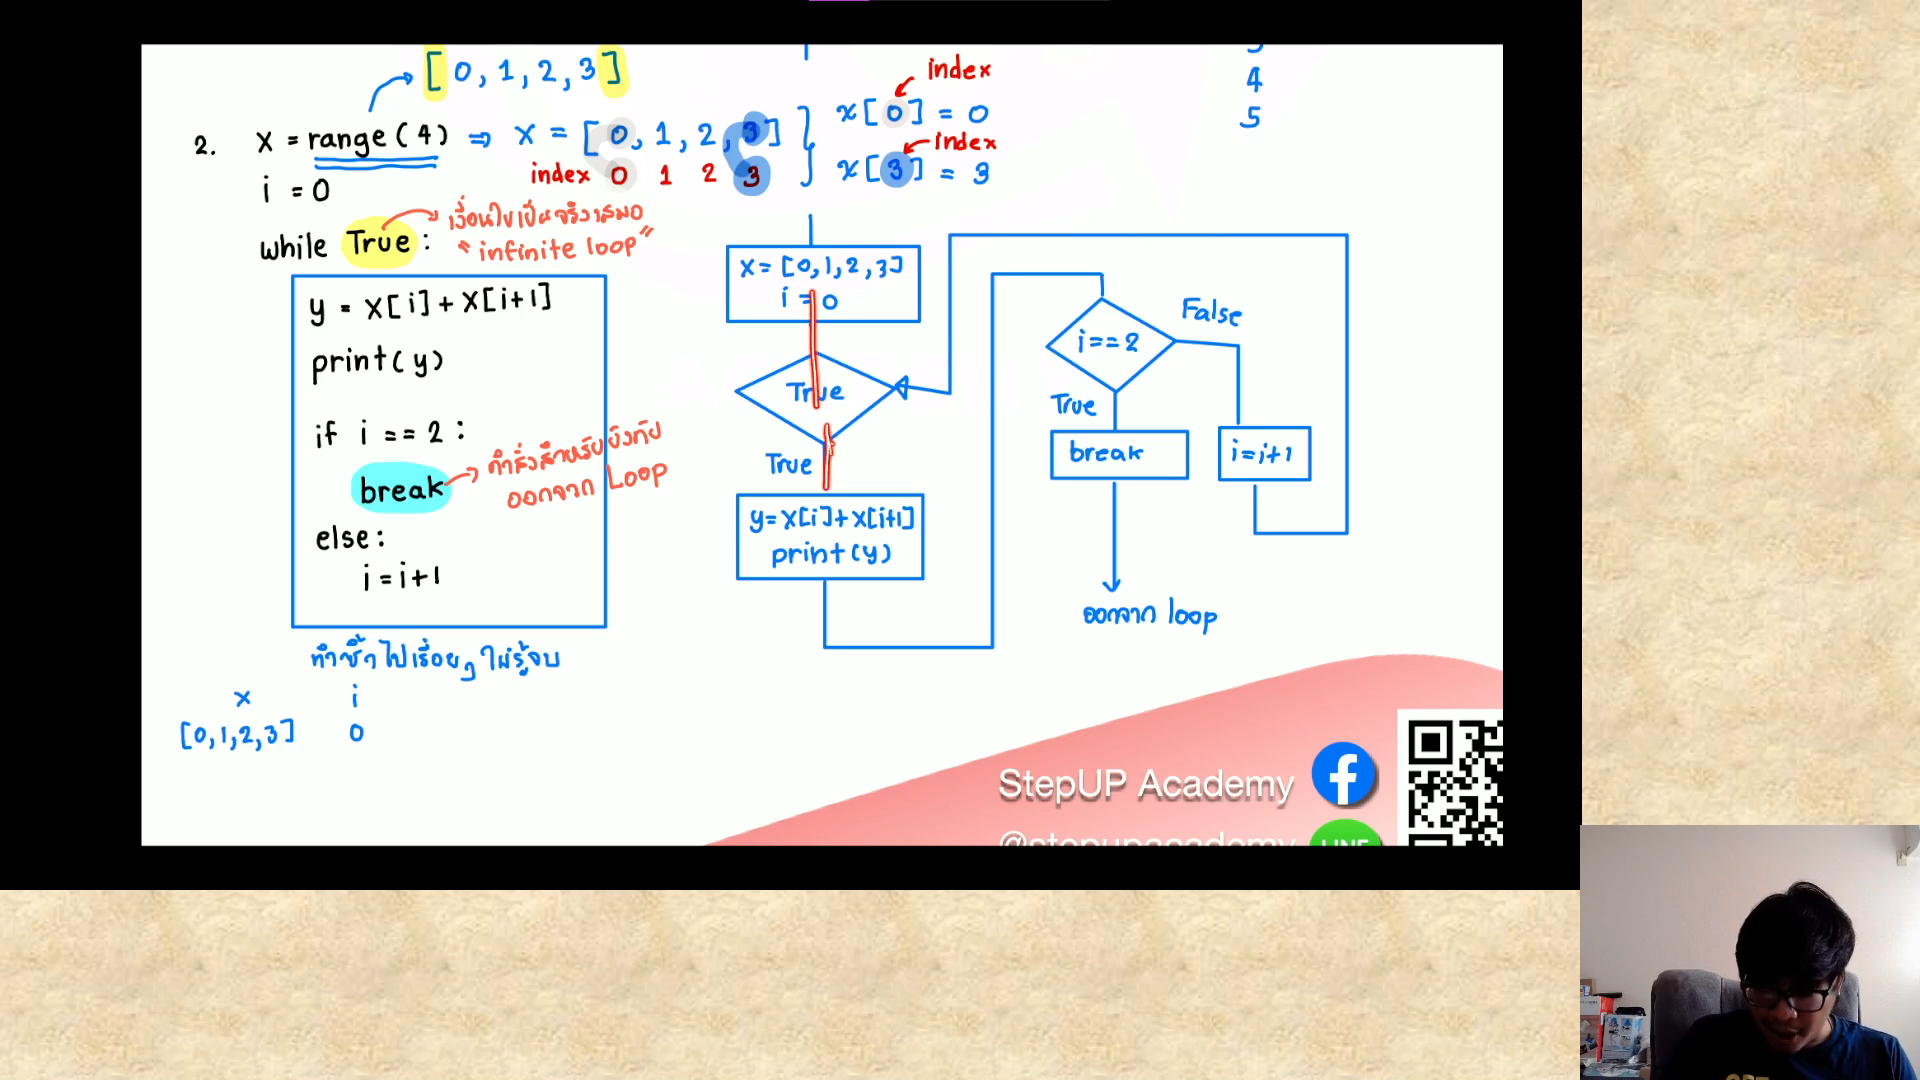 [0, 1, 2, 3]
2. x = range(4) ⇒ x = [0, 1, 2, 3]
index 0 1 2 3
index
x[0] = 0
index
x[3] = 3
4
5
i = 0
while True:
เงื่อนไขเป็นจริงเสมอ
"infinite loop"
y = x[i] + x[i+1]
print(y)
if i == 2:
break
คำสั่งสำหรับบังคับ
ออกจาก Loop
else:
i = i+1
ทำซ้ำไปเรื่อยๆ ไม่รู้จบ
x i
[0,1,2,3] 0
x = [0,1,2,3]
i = 0
True
True
y=x[i]+x[i+1]
print(y)
i==2
False
True
break
i=i+1
ออกจาก loop
StepUP Academy
@stepupacademy
LINE